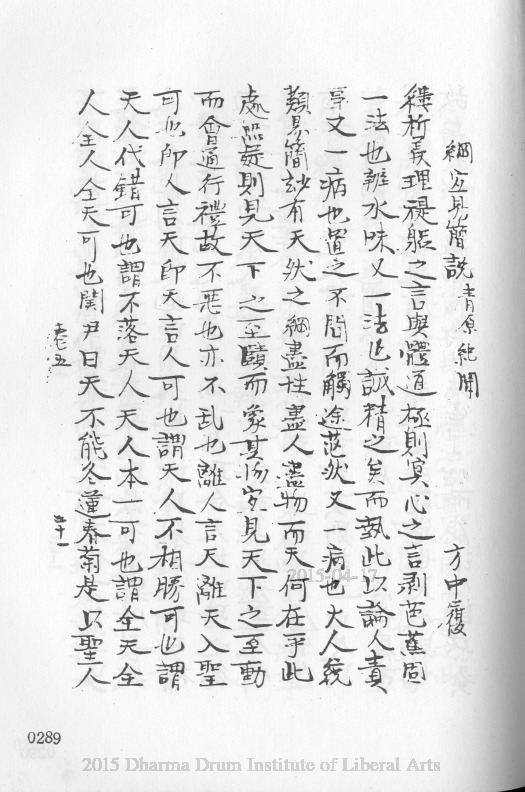 綱宜易簡說 青原絶聞
方中履
種析義理禔躬之言與體道極則冥心之言剥芭蕉周
一法也辨水味又一法也誠精之矣而執此以論人責
享又一病也置之不聞而觸途茫狀又一病也大人統
類易簡玅有天狀之綱盡性盡人盡物而天何在乎此
處無疑則見天下之至賾而象其物宜見天下之至動
而會通行禮故不惡也亦不乱也離人言天離天入聖
可也即人言天即天言人可也謂天人不相勝可也謂
天人代錯可也謂不落天人天人本一可也謂全天全
人全人全天可也関尹曰天不能冬蓮春菊是以聖人
五十一
0289
2015-04-17
2015 Dharma Drum Institute of Liberal Arts